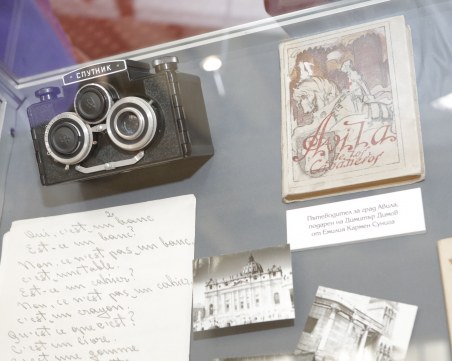 · СПУТНИК ·
Пътеводител за град Авила,
подарен на Димитър Димов
от Емилия Кармен Сунига
2
Oui, c'est un banc
Est-ce un banc?
Non, ce n'est pas un banc,
c'est une table.
Est-ce un cahier?
Non, ce n'est pas un cahier,
c'est un crayon.
Qu'est-ce que c'est?
C'est un livre.
C'est une gomme